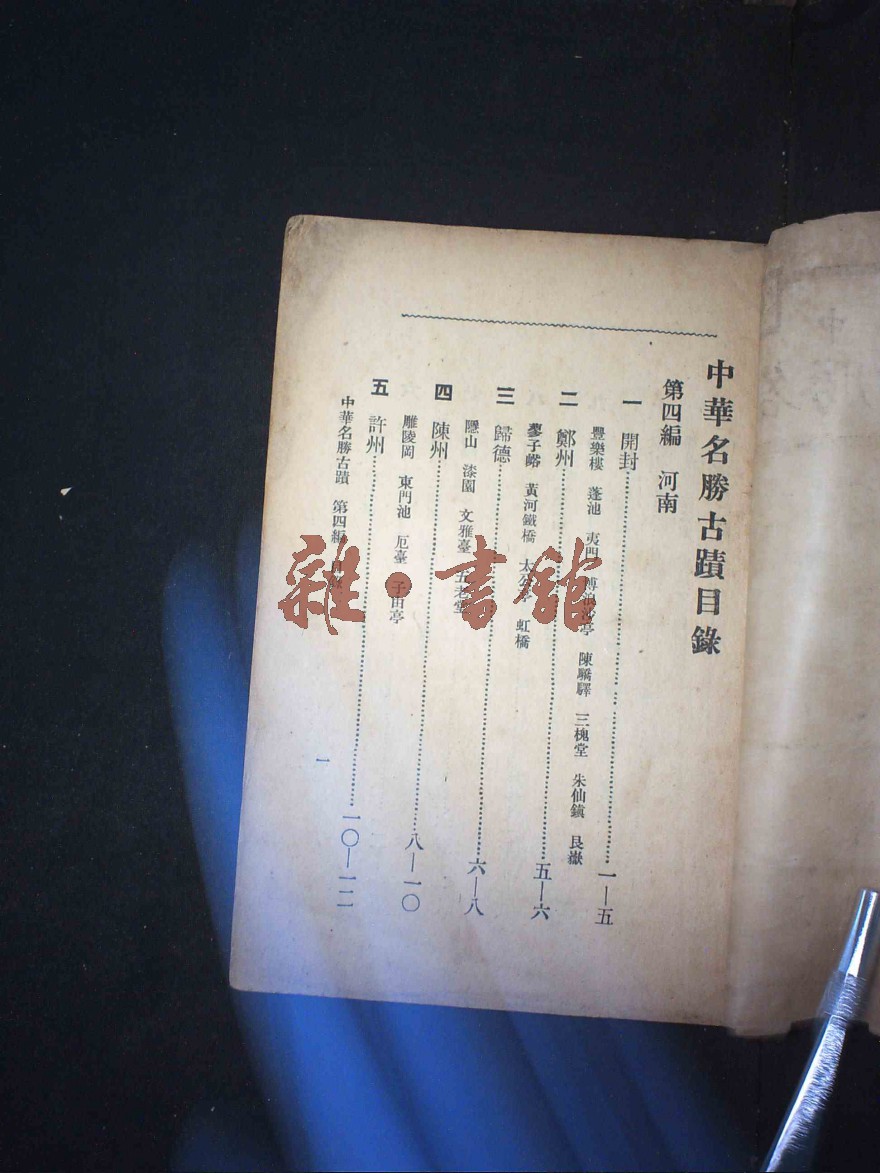 中華名勝古蹟目錄
第四編 河南
一 開封……一—五
豐樂樓 蓬池 夷門 博浪沙亭 陳驕驛 三槐堂 朱仙鎮 艮嶽
二 鄭州……五—六
蓼子峪 黃河鐵橋 太公 虹橋
三 歸德……六—八
隱山 漆園 文雅臺 五老堂
四 陳州……八—一〇
雕陵岡 東門池 厄臺 子由亭
五 許州……一〇—一二
中華名勝古蹟 第四編 目錄
一
雜·書館